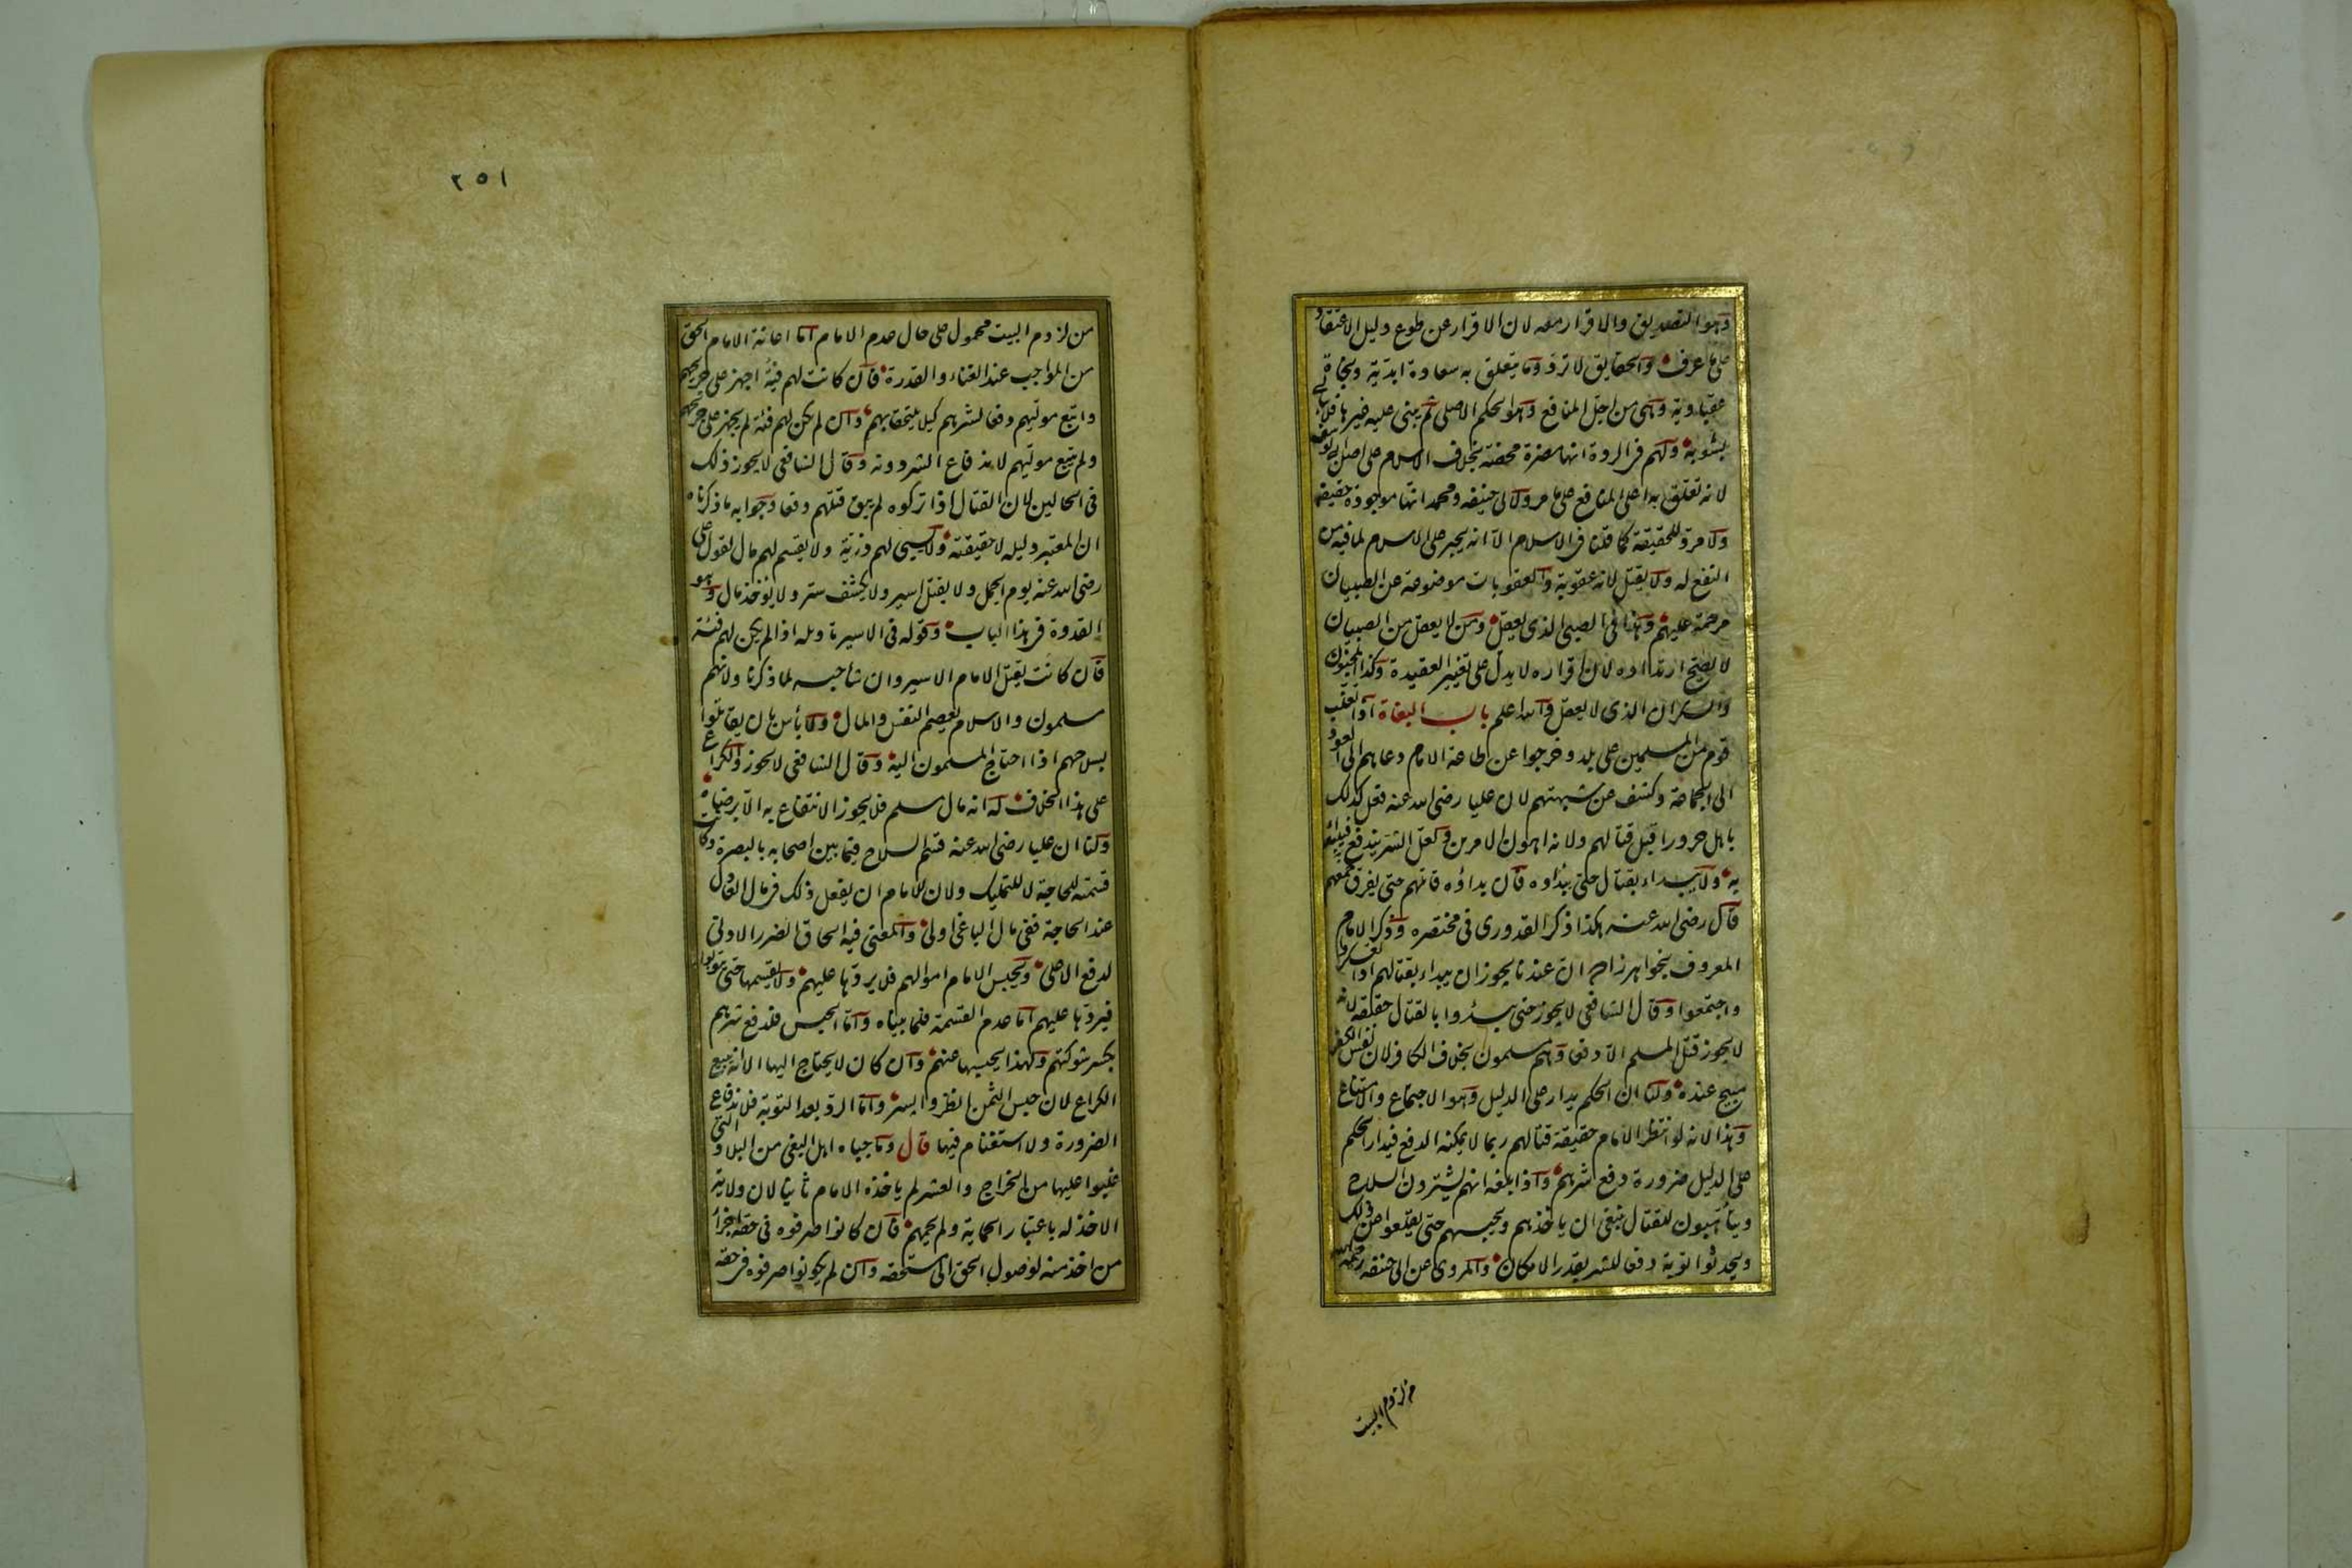 وهو التصديق والاقرار معه لان الاقرار عن طوع دليل الاعتقاد
على ما عرف والحقايق لا ترد وما يتعلق به سعادة ابدية ونجاة
عقباوية وهى من اجل المنافع وهو الحكم الاصلى ثم يبنى عليه غيرها فلا يبالى
بشوبه ولهم فى الردة انها مضرة محضة بخلاف الاسلام على اصل ابى يوسف
لانه تعلق به اعلى المنافع على ما مر ولابى حنيفه ومحمد انها موجودة حقيقة
ولا مرد للحقيقة كما قلنا فى الاسلام الا انه يجبر على الاسلام لما فيه من
النفع له ولا يقتل لانه عقوبة والعقوبات موضوعة عن الصبيان
مرحمة عليهم وهذا فى الصبى الذى يعقل ومن لا يعقل من الصبيان
لا يصح ارتداده لان اقراره لا يدل على تغيير العقيدة وكذا المجنون
والسكران الذى لا يعقل والله اعلم باب البغاة اذا تغلب
قوم من المسلمين على بلد وخرجوا عن طاعة الامام دعاهم الى العود
الى الجماعة وكشف عن شبهتهم لان عليا رضى الله عنه فعل كذلك
باهل حرورا قبل قتالهم ولانه اهون الامرين ولعل الشر يندفع به فيبدأ
به ولا يبداء بقتال حتى يبدأوه فان بداؤه قاتلهم حتى يفرق جمعهم
قال رضى الله عنه هكذا ذكر القدورى فى مختصره وذكر الامام
المعروف بخواهرزاده ان عندنا يجوز ان يبداء بقتالهم اذا تعسكروا
واجتمعوا وقال الشافعى لا يجوز حتى يبدؤا بالقتال حقيقة لانه
لا يجوز قتل المسلم الا دفعا وهم مسلمون بخلاف الكافر لان نفس الكفر
مبيح عنده ولنا ان الحكم يدار على الدليل وهو الاجتماع والامتناع
وهذا لانه لو انتظر الامام حقيقة قتالهم ربما لا يمكنه الدفع فيدار الحكم
على الدليل ضرورة دفع شرهم واذا بلغه انهم يشترون السلاح
ويتأهبون للقتال ينبغى ان ياخذهم ويحبسهم حتى يقلعوا عن ذلك
ويحدثوا توبة دفعا للشر بقدر الامكان والمروى عن ابى حنيفه رحمه الله
من لزوم البيت
٢٥١
من لزوم البيت محمول على حال عدم الامام اما اعانة الامام الحق
من المواجب عند الغناء والقدرة فان كانت لهم فئة اجهز على جريحهم
واتبع موليهم دفعا لشرهم كيلا يلتحقا بهم وان لم يكن لهم فئة لم يجهز على جريحهم
ولم يتبع موليهم لاندفاع الشر دونه وقال الشافعى لا يجوز ذلك
فى الحالين لان القتال اذا تركوه لم يبق قتلهم دفعا وجوابه ما ذكرناه
ان المعتبر دليله لا حقيقته ولا يسبى لهم ذرية ولا يقسم لهم مال لقول على
رضى الله عنه يوم الجمل ولا يقتل اسير ولا يكشف ستر ولا يؤخذ مال وهو
القدوة فى هذا الباب وقوله فى الاسير تاويله اذا لم يكن لهم فئة
فان كانت يقتل الامام الاسير وان شاء حبسه لما ذكرنا ولانهم
مسلمون والاسلام يعصم النفس والمال ولا بأس بان يقاتلوا
بسلاحهم اذا احتاج المسلمون اليه وقال الشافعى لا يجوز والكراع
على هذا الخلاف له انه مال مسلم فلا يجوز الانتفاع به الا برضاه
ولنا ان عليا رضى الله عنه قسم السلاح فيما بين اصحابه بالبصرة وكانت
قسمته للحاجة لا للتمليك ولان للامام ان يفعل ذلك فى مال العادل
عند الحاجة ففى مال الباغى اولى والمعنى فيه الحاق الضرر الادنى
لدفع الاعلى ويحبس الامام اموالهم فلا يردها عليهم ولا يقسمها حتى يتوبوا
فيردها عليهم اما عدم القسمة فلما بيناه واما الحبس فلدفع شرهم
بكسر شوكتهم ولهذا يحبسها عنهم وان كان لا يحتاج اليها الا انه يبيع
الكراع لان حبس الثمن انظر وايسر واما الرد بعد التوبة فلاندفاع
الضرورة ولا استغنام فيها قال وما جباه اهل البغى من البلاد التى
غلبوا عليها من الخراج والعشر لم ياخذه الامام ثانيا لان ولاية
الاخذ له باعتبار الحماية ولم يحمهم فان كانوا صرفوه فى حقه اجزأ
من اخذ منه لوصول الحق الى مستحقه وان لم يكونوا صرفوه فى حقه